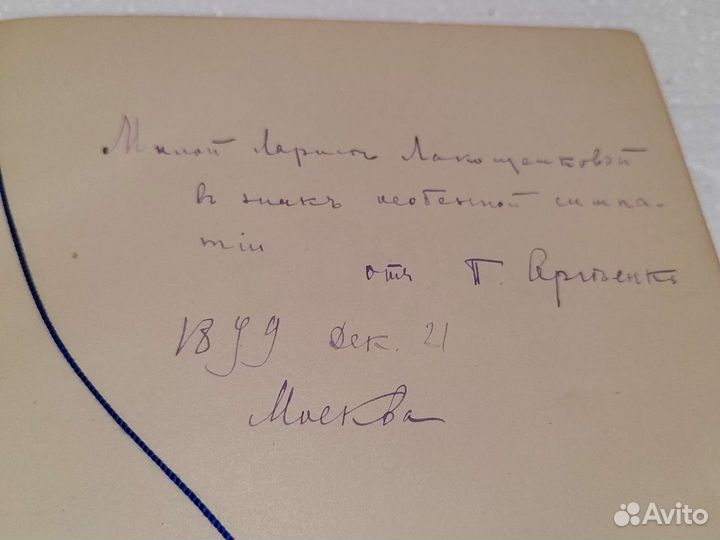 Милой Ларисѣ Лакощенковой
въ знакъ особенной симпа-
тіи
отъ П. Сергѣенко
1899 Дек. 21
Москва
Avito